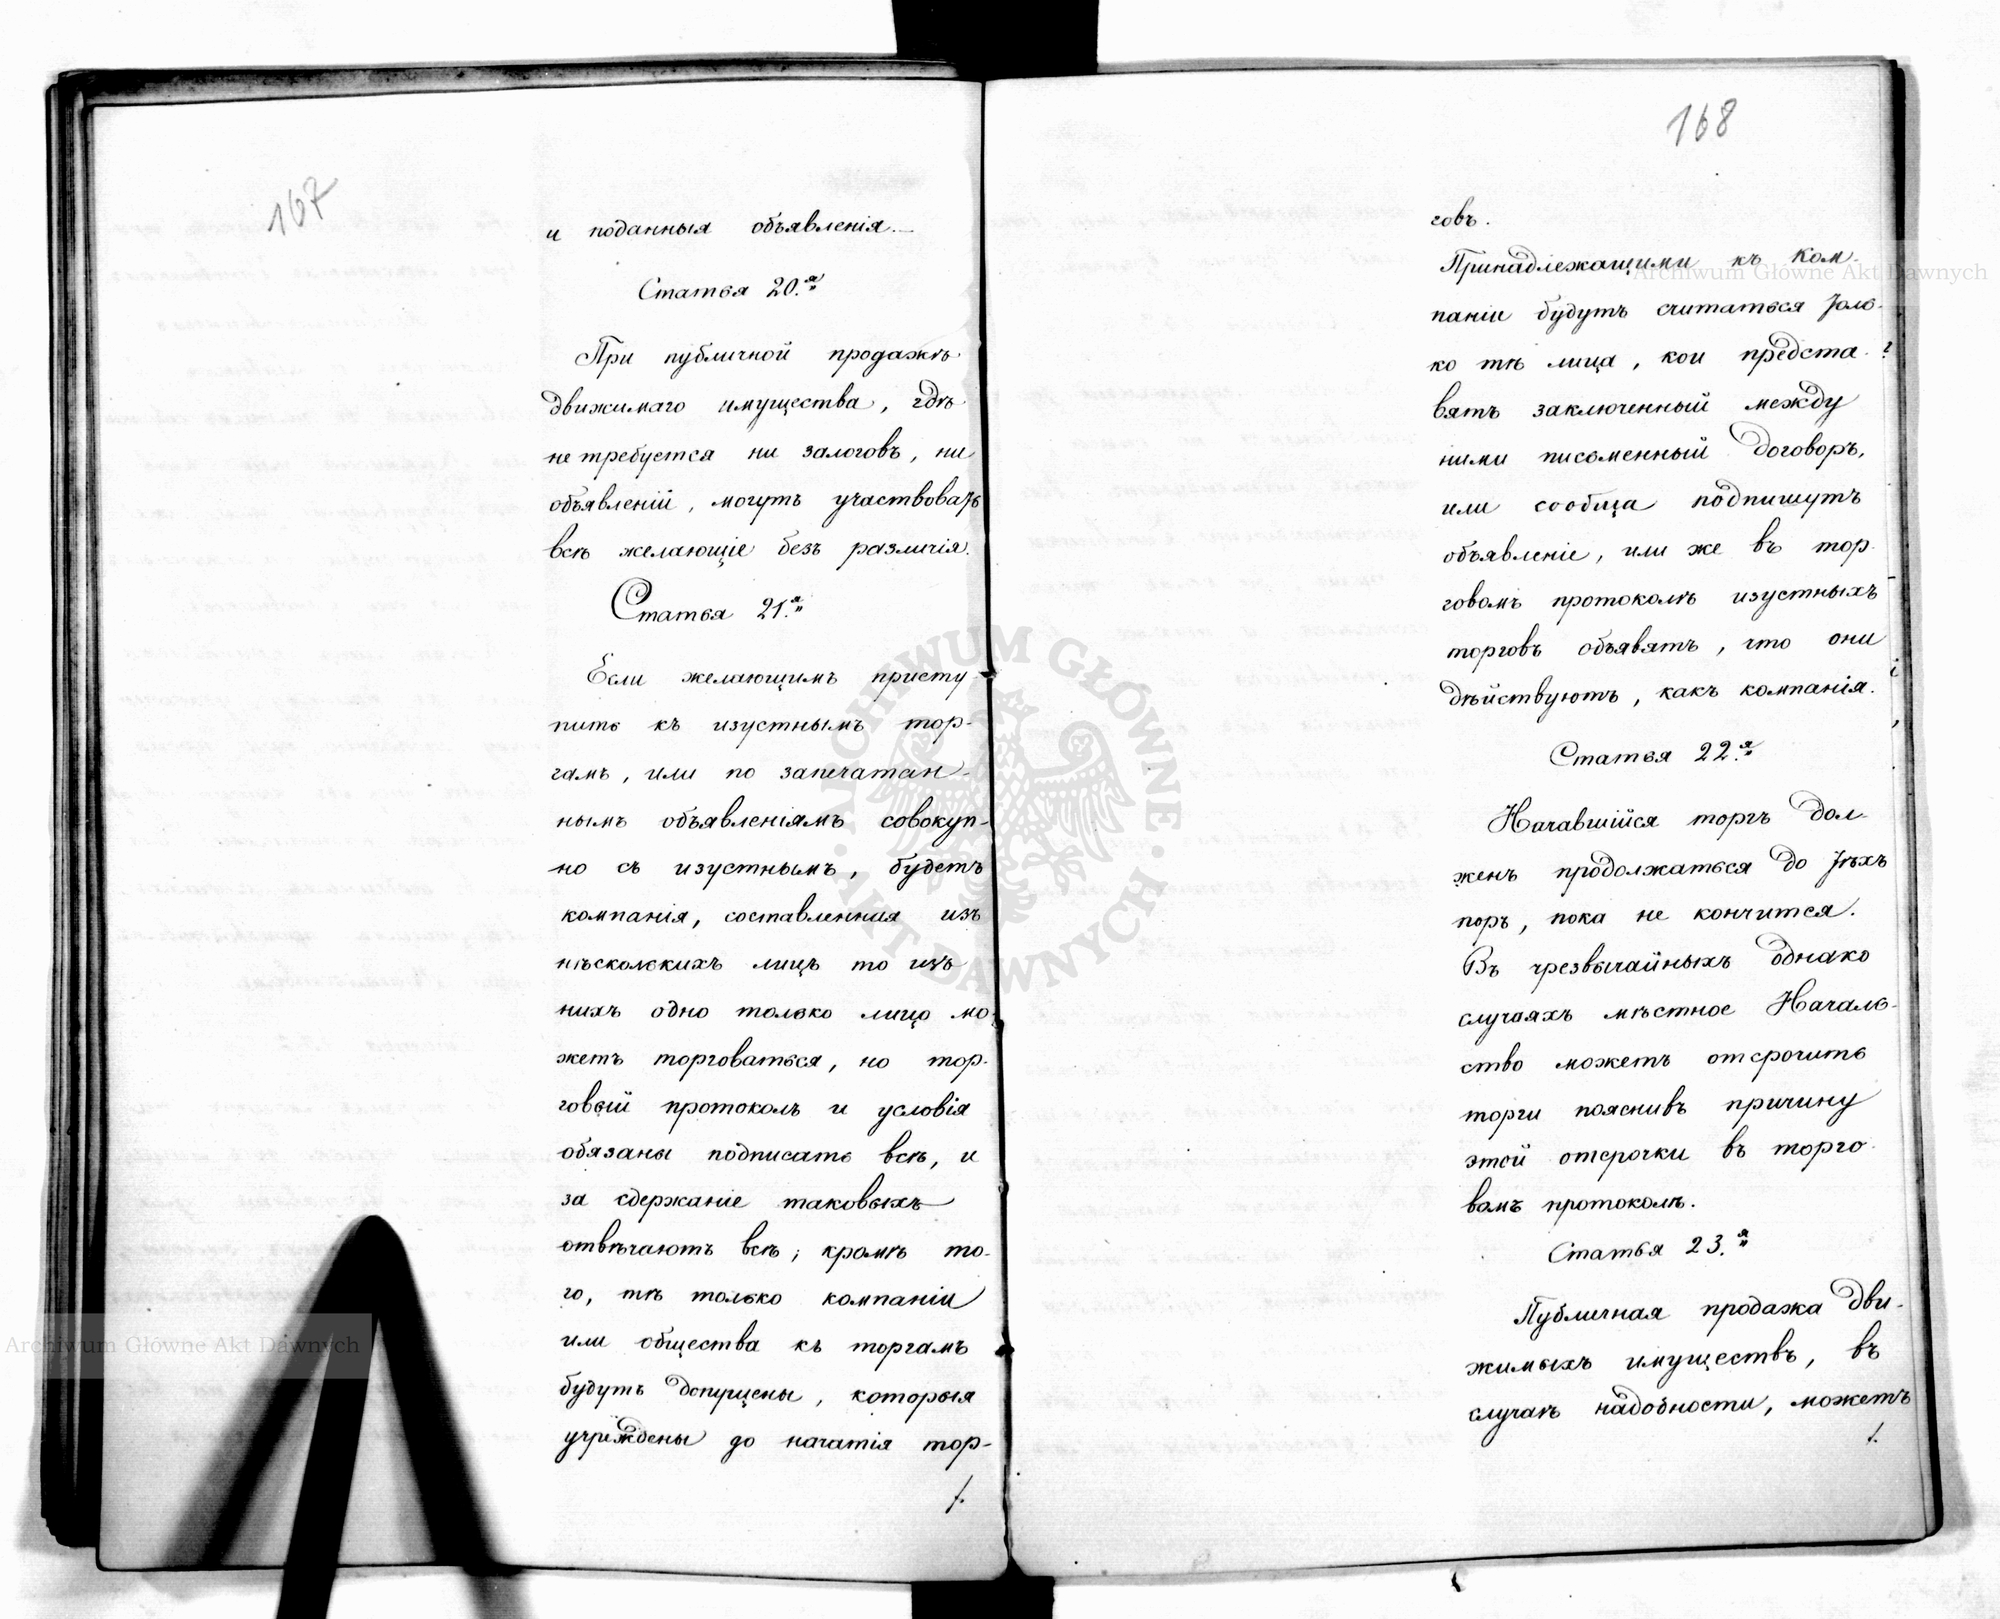 167
и поданныя объявленія.
Статья 20.я
При публичной продажѣ
движимаго имущества, гдѣ
не требуется ни залоговъ, ни
объявленій, могутъ участвовать
всѣ желающіе безъ различія.
Статья 21.я
Если желающимъ присту-
пить къ изустнымъ тор-
гамъ, или по запечатан-
нымъ объявленіямъ совокуп-
но съ изустнымъ, будетъ
компанія, составленная изъ
нѣсколькихъ лицъ то изъ
нихъ одно только лицо мо-
жетъ торговаться, но тор-
говый протоколъ и условія
обязаны подписать всѣ, и
за сдержаніе таковыхъ
отвѣчаютъ всѣ; кромѣ то-
го, тѣ только компаніи
или общества къ торгамъ
будутъ допущены, которыя
учреждены до начатія тор-
/.
168
говъ.
Принадлежащими къ ком-
паніи будутъ считаться толь-
ко тѣ лица, кои предста-
вятъ заключенный между
ними письменный договоръ,
или сообща подпишутъ
объявленіе, или же въ тор-
говомъ протоколѣ изустныхъ
торговъ объявятъ, что они
дѣйствуютъ, какъ компанія.
Статья 22.я
Начавшійся торгъ дол-
женъ продолжаться до тѣхъ
поръ, пока не кончится.
Въ чрезвычайныхъ однако
случаяхъ мѣстное Началь-
ство можетъ отсрочить
торги пояснивъ причину
этой отсрочки въ торго-
вомъ протоколѣ.
Статья 23.я
Публичная продажа дви-
жимыхъ имуществъ, въ
случаѣ надобности, можетъ
/.
ARCHIWUM GŁÓWNE AKT DAWNYCH
Archiwum Główne Akt Dawnych
Archiwum Główne Akt Dawnych